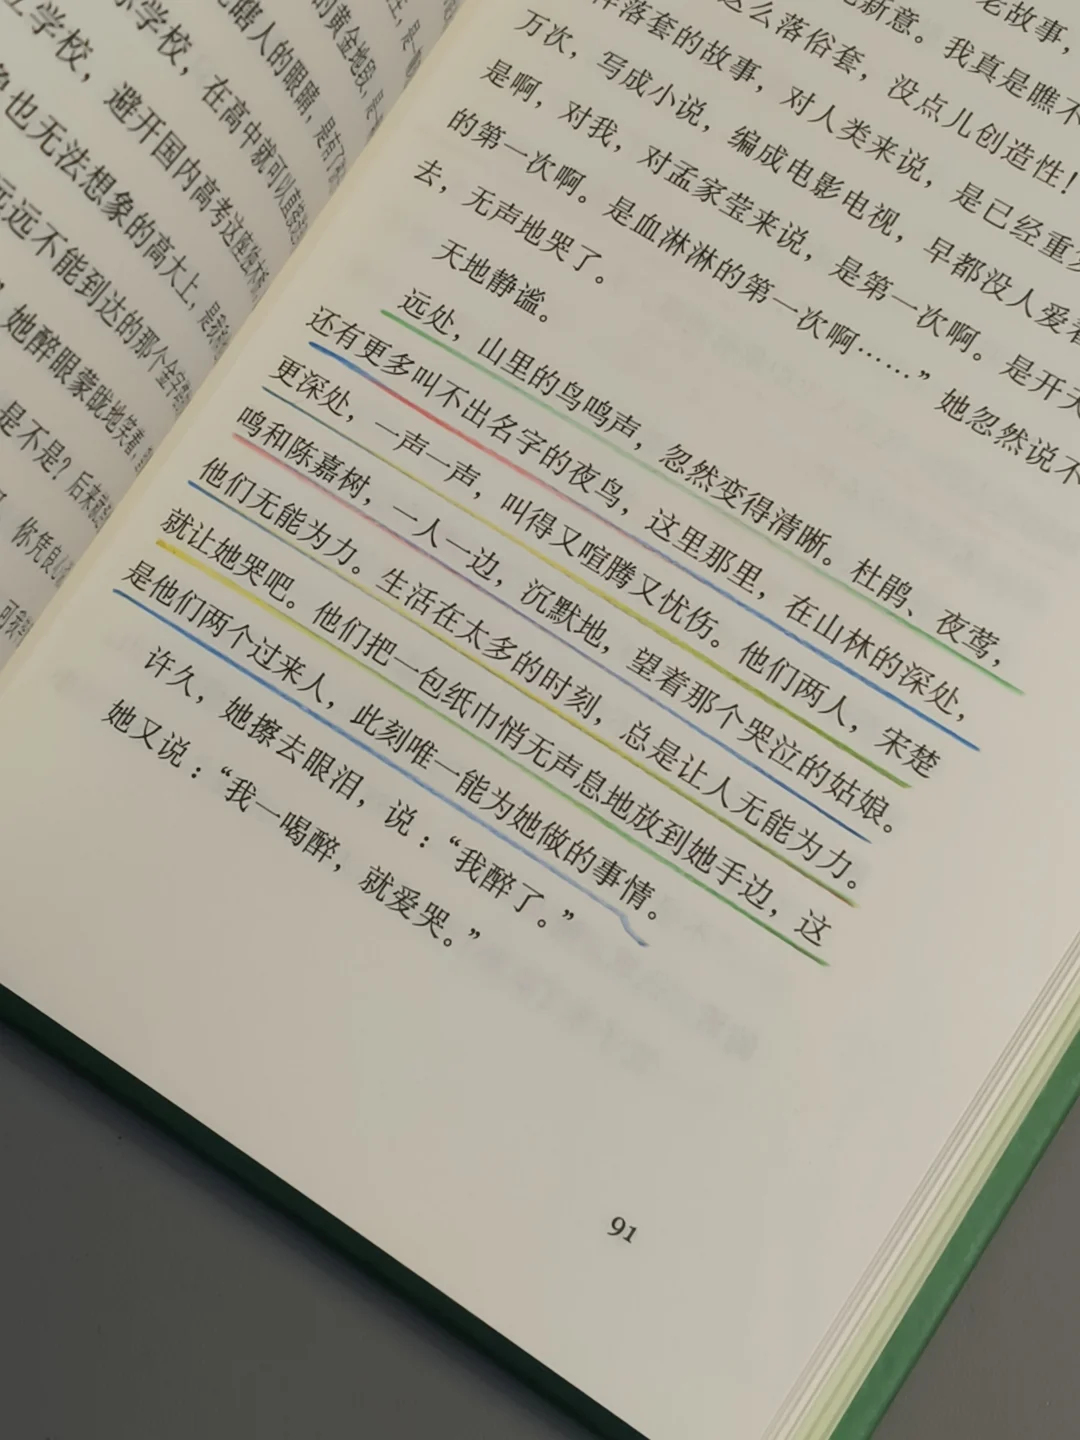 学校，避开国内高考这
学校，在高中就可以
瞎人的眼睛，是
的黄金地段，是
也无法想象的高大上，是
远远不能到达的那个金字
她醉眼蒙眬地笑着，
是不是？后来
你凭良心
老故事，
新意。我真是瞧不
这么落俗套，没点儿创造性！
落套的故事，对人类来说，是已经重复
万次，写成小说，编成电影电视，早都没人爱看
是啊，对我，对孟家莹来说，是第一次啊。是开天
的第一次啊。是血淋淋的第一次啊……”她忽然说不
去，无声地哭了。
天地静谧。
远处，山里的鸟鸣声，忽然变得清晰。杜鹃、夜莺，
还有更多叫不出名字的夜鸟，这里那里，在山林的深处，
更深处，一声一声，叫得又喧腾又忧伤。他们两人，宋楚
鸣和陈嘉树，一人一边，沉默地，望着那个哭泣的姑娘。
他们无能为力。生活在太多的时刻，总是让人无能为力。
就让她哭吧。他们把一包纸巾悄无声息地放到她手边，这
是他们两个过来人，此刻唯一能为她做的事情。
许久，她擦去眼泪，说：“我醉了。”
她又说：“我一喝醉，就爱哭。”
91